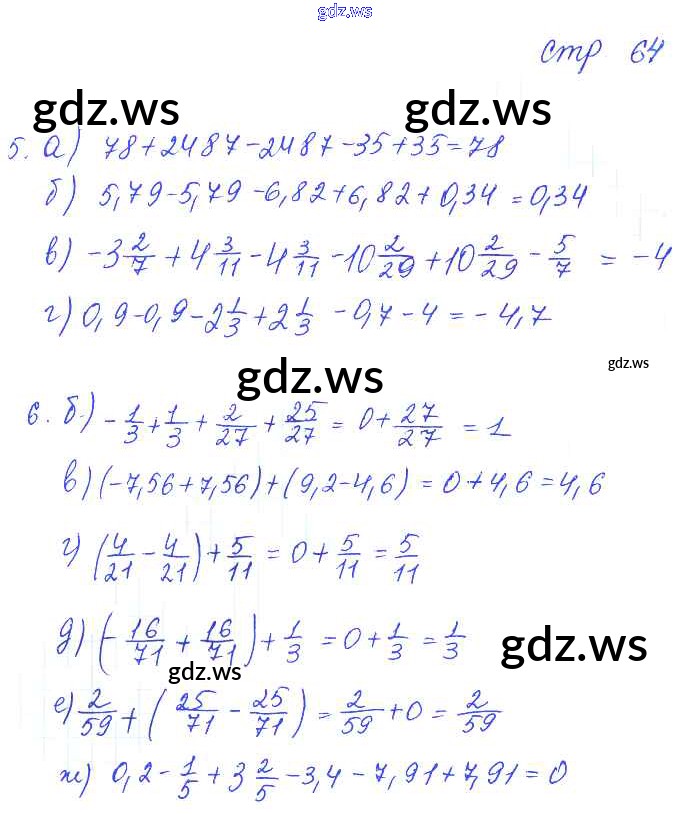 gdz.ws
стр 64
gdz.ws gdz.ws
5. а) 78+2487-2487-35+35=78
б) 5,79-5,79-6,82+6,82+0,34=0,34
в) -3 2/7 + 4 3/11 - 4 3/11 - 10 2/29 + 10 2/29 - 5/7 = -4
г) 0,9-0,9-2 1/3 + 2 1/3 - 0,7-4=-4,7
gdz.ws gdz.ws
6. б) -1/3 + 1/3 + 2/27 + 25/27 = 0 + 27/27 = 1
в) (-7,56+7,56)+(9,2-4,6)=0+4,6=4,6
г) (4/21 - 4/21) + 5/11 = 0 + 5/11 = 5/11
д) (-16/71 + 16/71) + 1/3 = 0 + 1/3 = 1/3
gdz.ws gdz.ws
е) 2/59 + (25/71 - 25/71) = 2/59 + 0 = 2/59
ж) 0,2 - 1/5 + 3 2/5 - 3,4 - 7,91+7,91=0